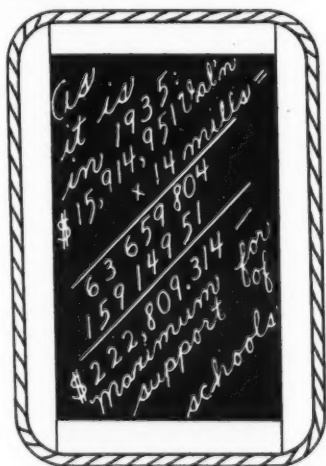 (as
it is
in 1935:
$15,914,951 Val'n
x 14 mills =
63 659 804
159 149 51
$222,809.314 —
maximum for
support of
schools